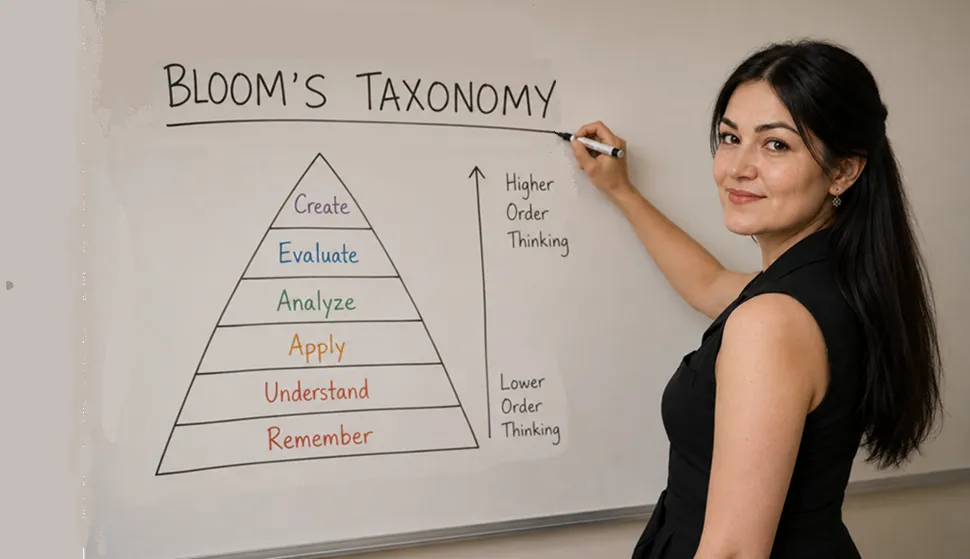 BLOOM'S TAXONOMY
Create
Evaluate
Analyze
Apply
Understand
Remember
Higher
Order
Thinking
Lower
Order
Thinking